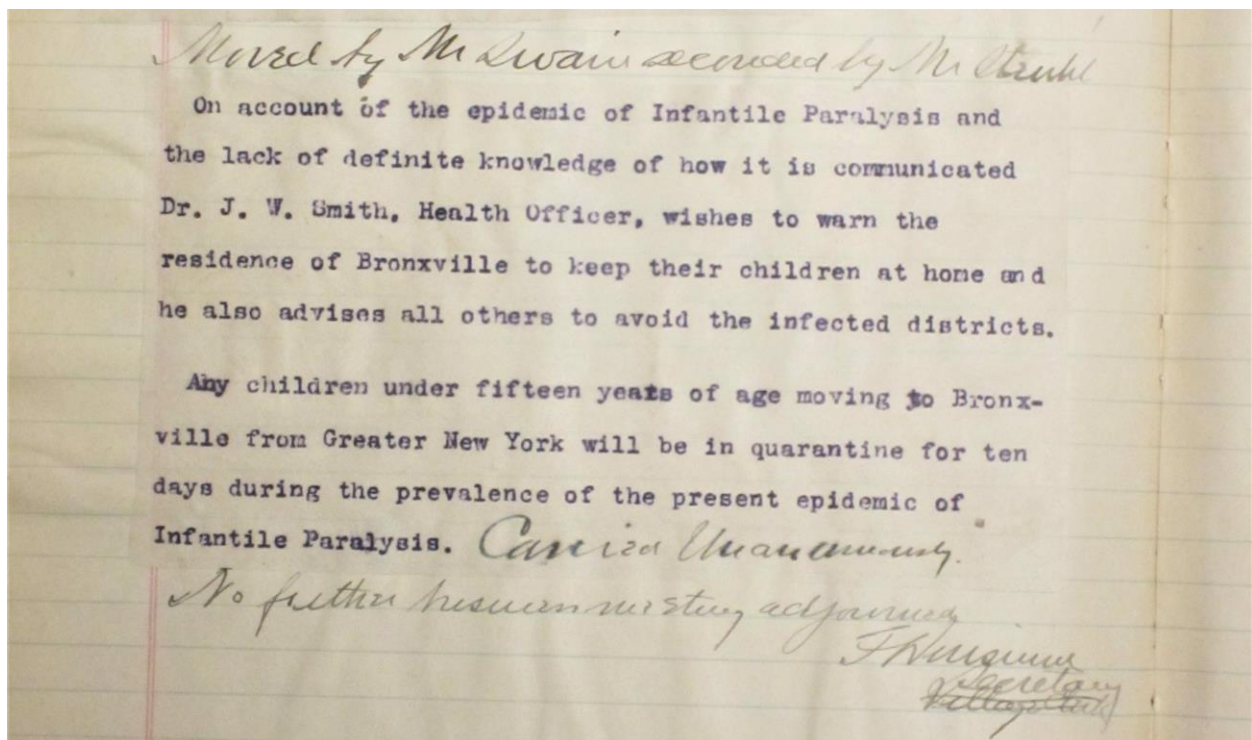 Moved by Mr Swain seconded by Mr
On account of the epidemic of Infantile Paralysis and
the lack of definite knowledge of how it is communicated
Dr. J. W. Smith, Health Officer, wishes to warn the
residence of Bronxville to keep their children at home and
he also advises all others to avoid the infected districts.
Any children under fifteen years of age moving to Bronx-
ville from Greater New York will be in quarantine for ten
days during the prevalence of the present epidemic of
Infantile Paralysis. Carried Unanamously.
No further business meeting adjourned
Secretary